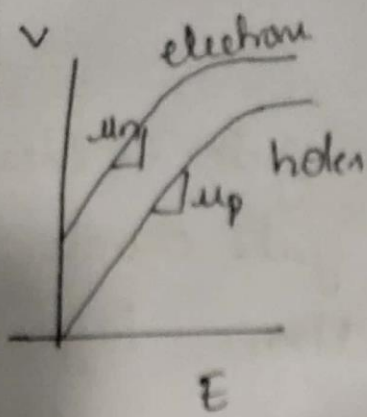 V
electrons
μn
holes
μp
E